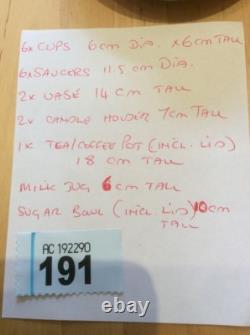 6x CUPS 6cm DIA. x 6cm TALL
6x SAUCERS 11.5 cm DIA.
2x VASE 14 cm TALL
2x CANDLE HOLDER 7cm TALL
1x TEA/COFFEE POT (INCL. LID)
18 cm TALL
MILK JUG 6cm TALL
SUGAR BOWL (INCL. LID) 10cm
TALL
AC 192290
191